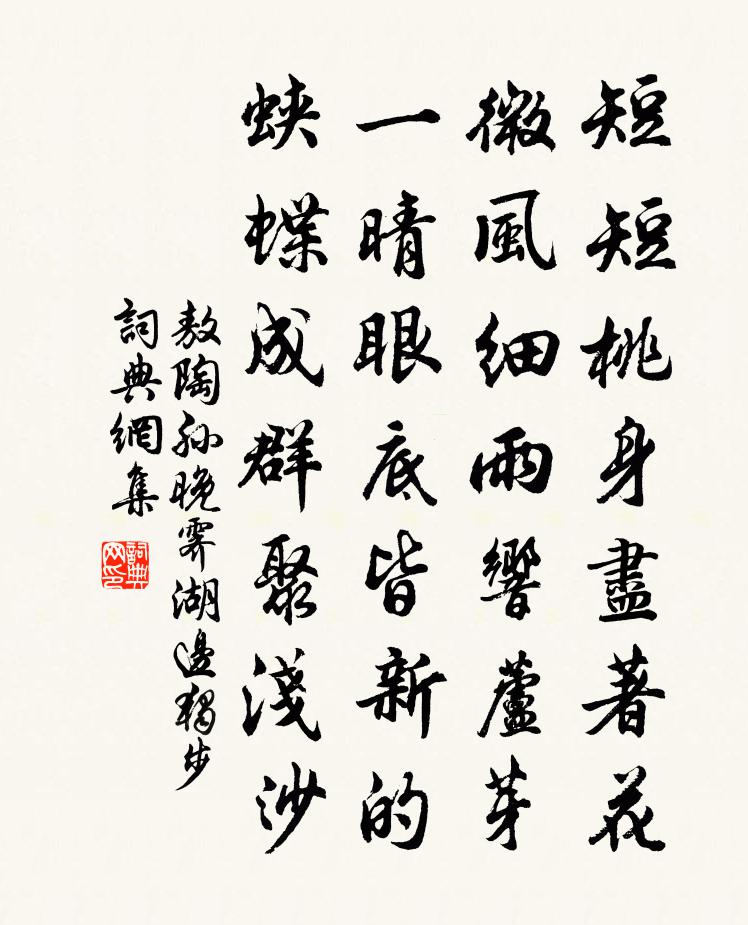 短短桃身盡著花
微風細雨響蘆芽
一晴眼底皆新的
蛺蝶成群聚淺沙
敖陶孫晚霽湖邊獨步
詞典網集
詞典
网印